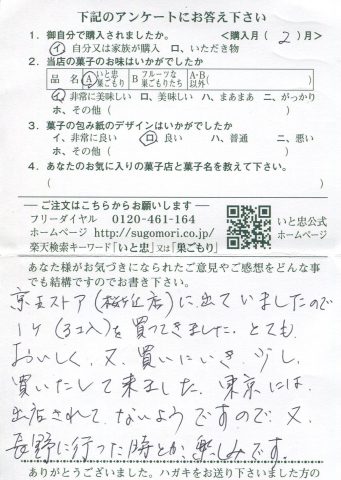 下記のアンケートにお答え下さい
1. 御自分で購入されましたか。 <購入月( 2 )月>
イ、自分又は家族が購入 ロ、いただき物
2. 当店の菓子のお味はいかがでしたか
品 名 A いと忠巣ごもり B フルーツな巣ごもりたち A・B以外( )
イ、非常に美味しい ロ、美味しい ハ、まあまあ ニ、がっかり
ホ、その他( )
3. 菓子の包み紙のデザインはいかがでしたか
イ、非常に良い ロ、良い ハ、普通 ニ、悪い
ホ、その他( )
4. あなたのお気に入りの菓子店と菓子名を教えて下さい。
( )
ご注文はこちらからお願いします
フリーダイヤル 0120-461-164
ホームページ http://sugomori.co.jp/
楽天検索キーワード「いと忠」又は「巣ごもり」
いと忠公式
ホームページ
あなた様がお気づきになられたご意見やご感想をどんな事
でも結構ですのでお書き下さい。
京王ストア(桜ヶ丘店)に出ていましたので
1ケ(3コ入)を買ってきました。とても
おいしく、又、買いにいき、少し、
買いたして来ました。東京には、
出店されて、ないようですので、又、
長野に行った時とか、楽しみです
ありがとうございました。ハガキをお送り下さいました方の